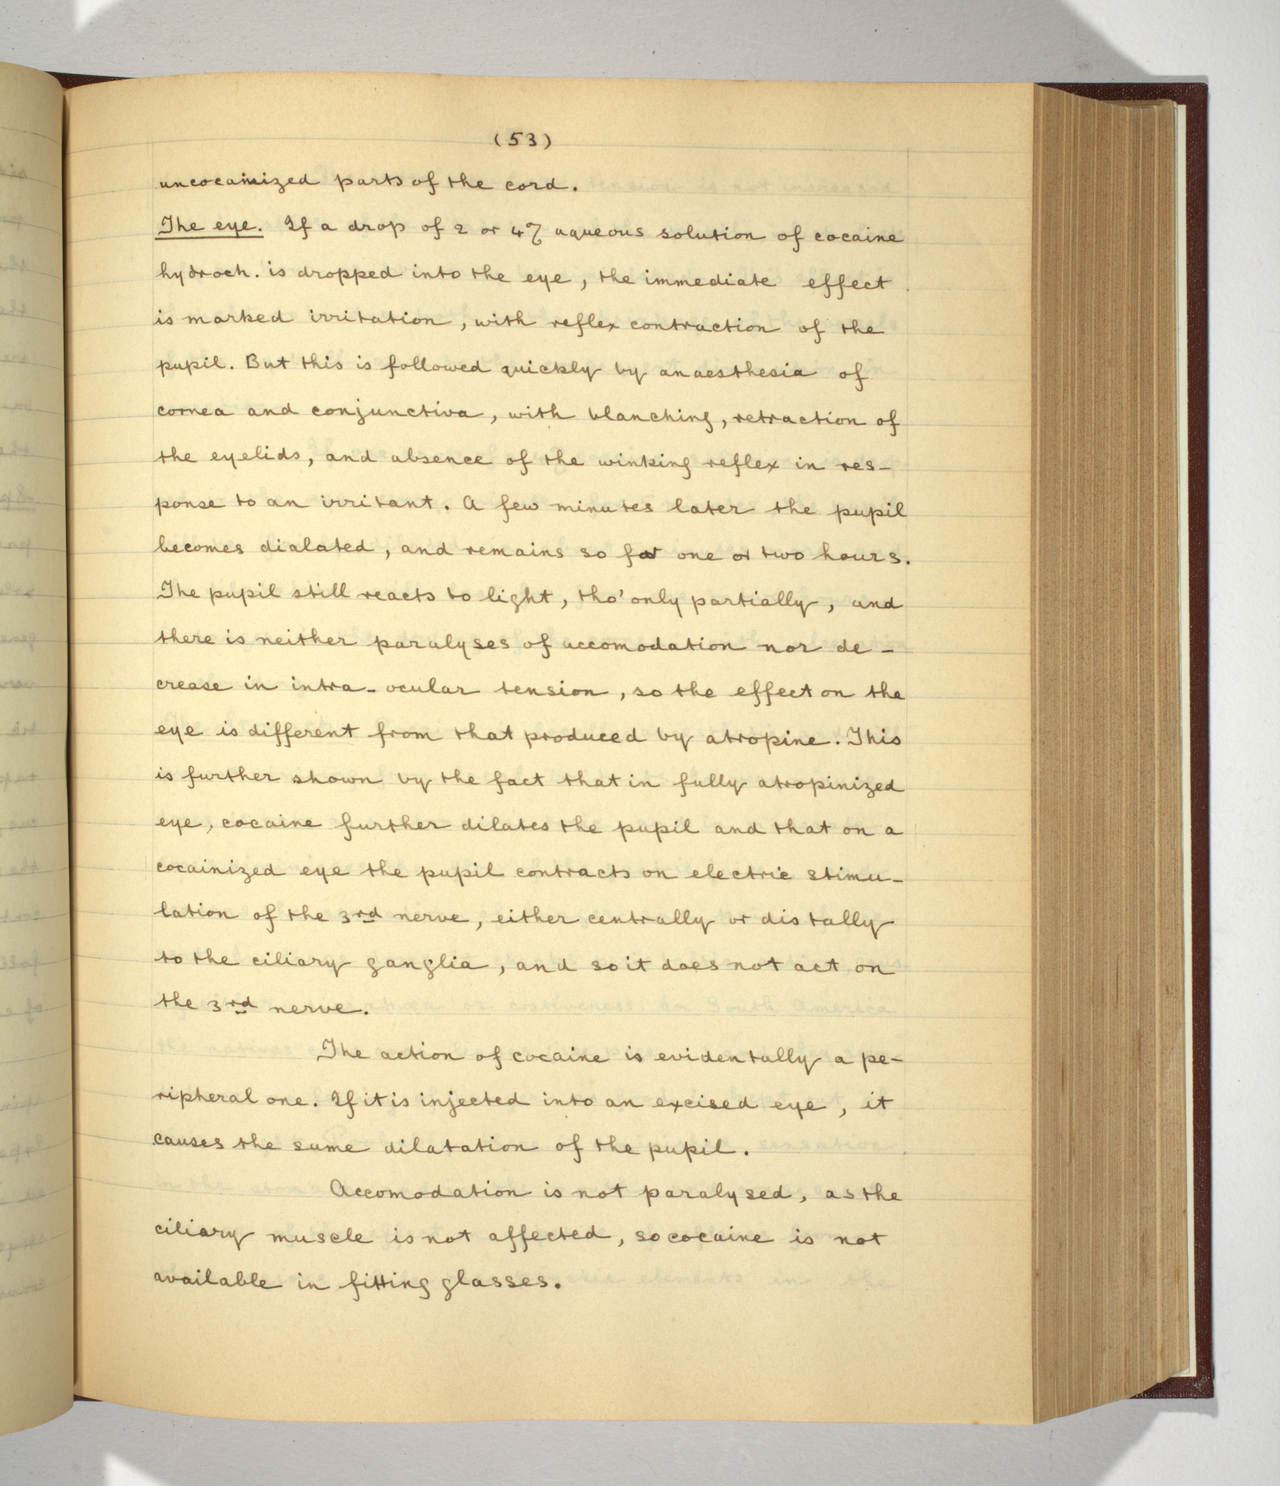 (53)
uncocainized parts of the cord.
The eye. If a drop of 2 or 4% aqueous solution of cocaine
hydroch. is dropped into the eye, the immediate effect
is marked irritation, with reflex contraction of the
pupil. But this is followed quickly by anaesthesia of
cornea and conjunctiva, with blanching, retraction of
the eyelids, and absence of the winking reflex in res-
ponse to an irritant. A few minutes later the pupil
becomes dialated, and remains so for one or two hours.
The pupil still reacts to light, tho' only partially, and
there is neither paralyses of accomodation nor de-
crease in intra-ocular tension, so the effect on the
eye is different from that produced by atropine. This
is further shown by the fact that in fully atropinized
eye, cocaine further dilates the pupil and that on a
cocainized eye the pupil contracts on electric stimu-
lation of the 3rd nerve, either centrally or distally
to the ciliary ganglia, and so it does not act on
the 3rd nerve.
The action of cocaine is evidentally a pe-
ripheral one. If it is injected into an excised eye, it
causes the same dilatation of the pupil.
Accomodation is not paralysed, as the
ciliary muscle is not affected, so cocaine is not
available in fitting glasses.